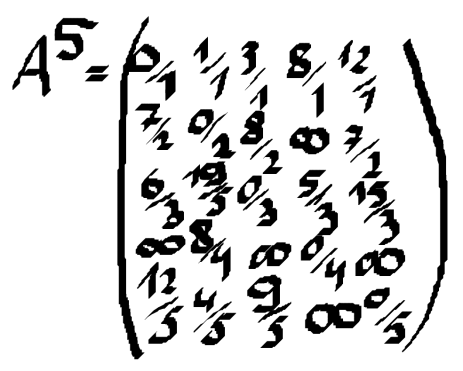 A⁵ = ( 0/1 1/1 3/1 8/1 12/1
7/2 0/2 8/2 ∞ 7/2
6/3 19/3 0/3 5/3 15/3
∞ 8/4 ∞ 0/4 ∞
12/5 4/5 9/5 ∞ 0/5 )